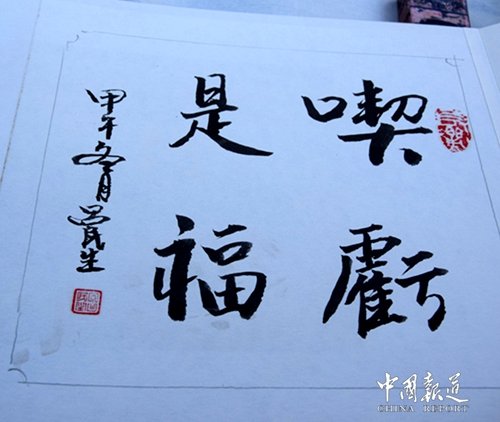 喫虧
是福
甲午冬月
中國報道
CHINA REPORT